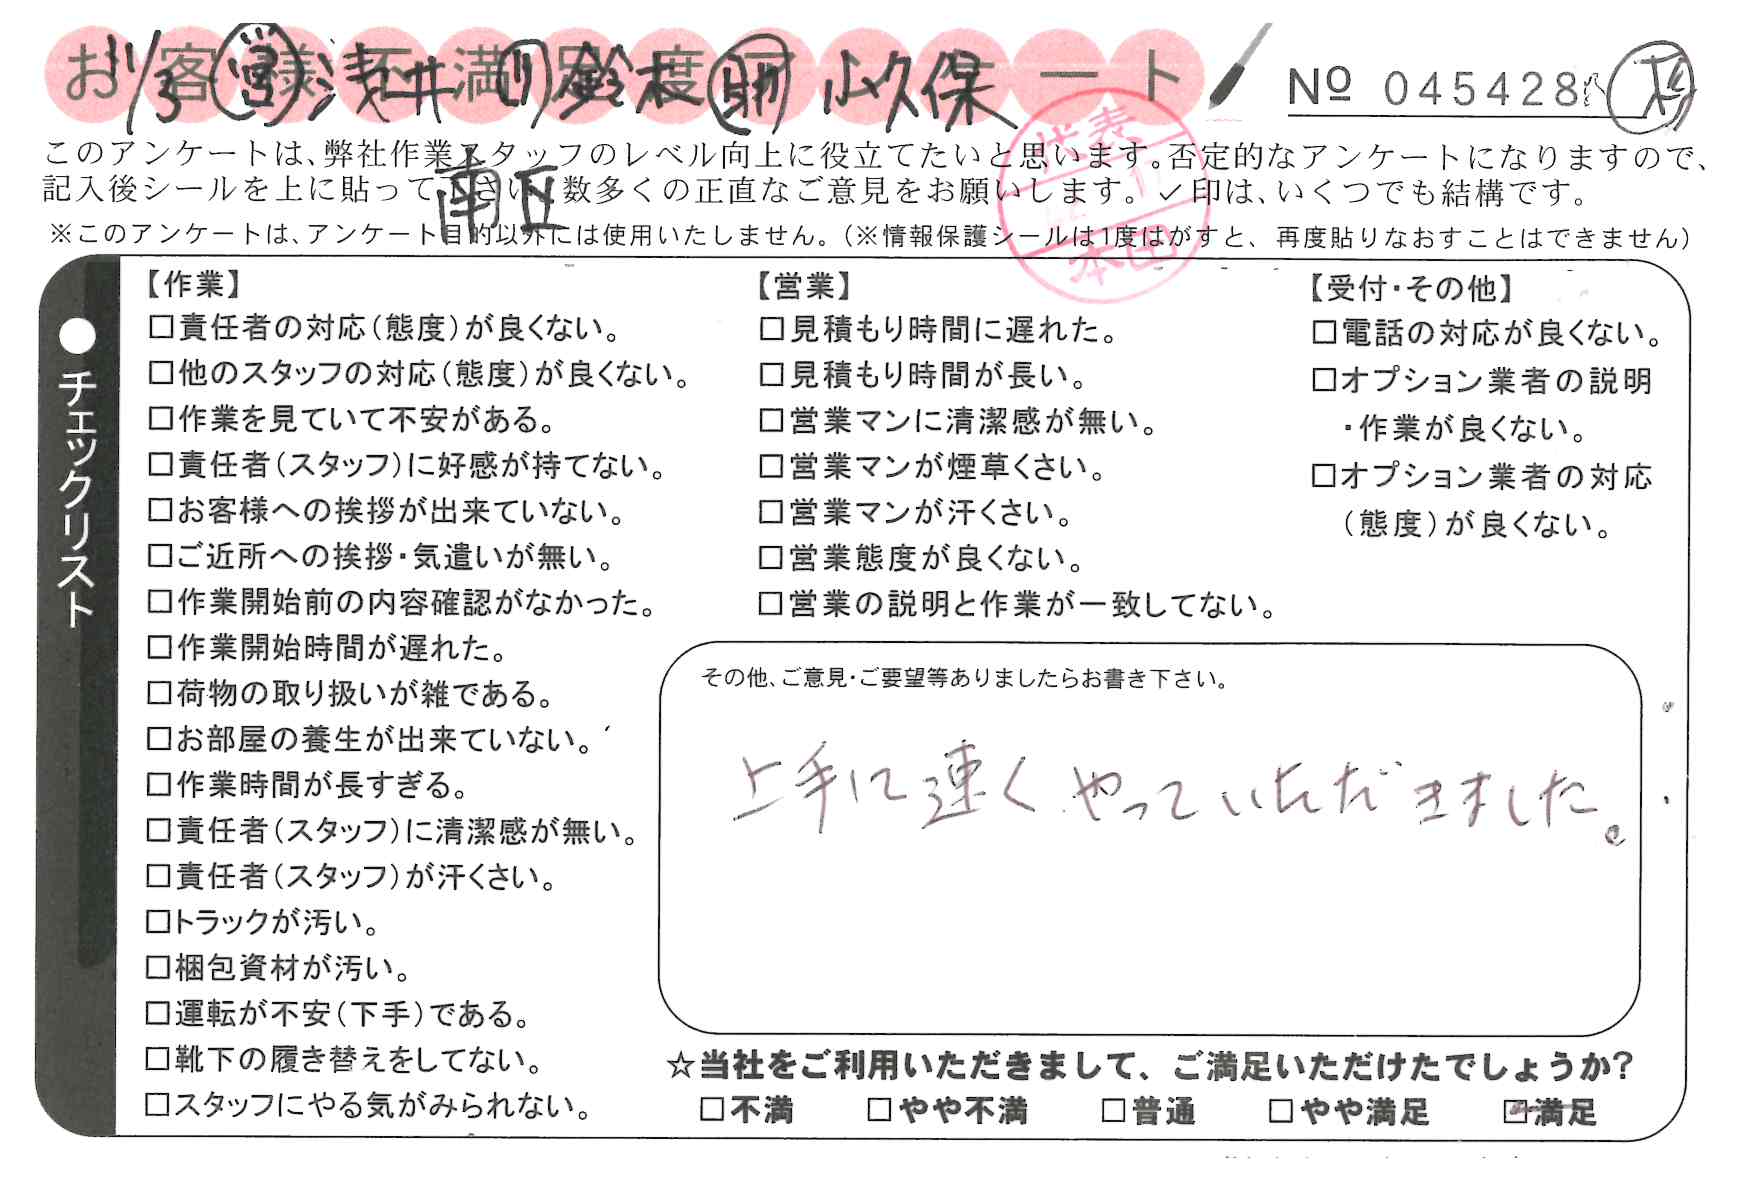 お客様不満足度アンケート
11/3 営 浅井 リ 鈴木 助 小久保
№ 045428
このアンケートは、弊社作業スタッフのレベル向上に役立てたいと思います。否定的なアンケートになりますので、
記入後シールを上に貼って下さい。数多くの正直なご意見をお願いします。✓印は、いくつでも結構です。
南丘
※このアンケートは、アンケート目的以外には使用いたしません。(※情報保護シールは1度はがすと、再度貼りなおすことはできません)
代表
本田
●チェックリスト
【作業】
□責任者の対応(態度)が良くない。
□他のスタッフの対応(態度)が良くない。
□作業を見ていて不安がある。
□責任者(スタッフ)に好感が持てない。
□お客様への挨拶が出来ていない。
□ご近所への挨拶・気遣いが無い。
□作業開始前の内容確認がなかった。
□作業開始時間が遅れた。
□荷物の取り扱いが雑である。
□お部屋の養生が出来ていない。
□作業時間が長すぎる。
□責任者(スタッフ)に清潔感が無い。
□責任者(スタッフ)が汗くさい。
□トラックが汚い。
□梱包資材が汚い。
□運転が不安(下手)である。
□靴下の履き替えをしてない。
□スタッフにやる気がみられない。
【営業】
□見積もり時間に遅れた。
□見積もり時間が長い。
□営業マンに清潔感が無い。
□営業マンが煙草くさい。
□営業マンが汗くさい。
□営業態度が良くない。
□営業の説明と作業が一致してない。
【受付・その他】
□電話の対応が良くない。
□オプション業者の説明
・作業が良くない。
□オプション業者の対応
(態度)が良くない。
その他、ご意見・ご要望等ありましたらお書き下さい。
上手に速くやっていただきました。
☆当社をご利用いただきまして、ご満足いただけたでしょうか?
□不満 □やや不満 □普通 □やや満足 ☑満足